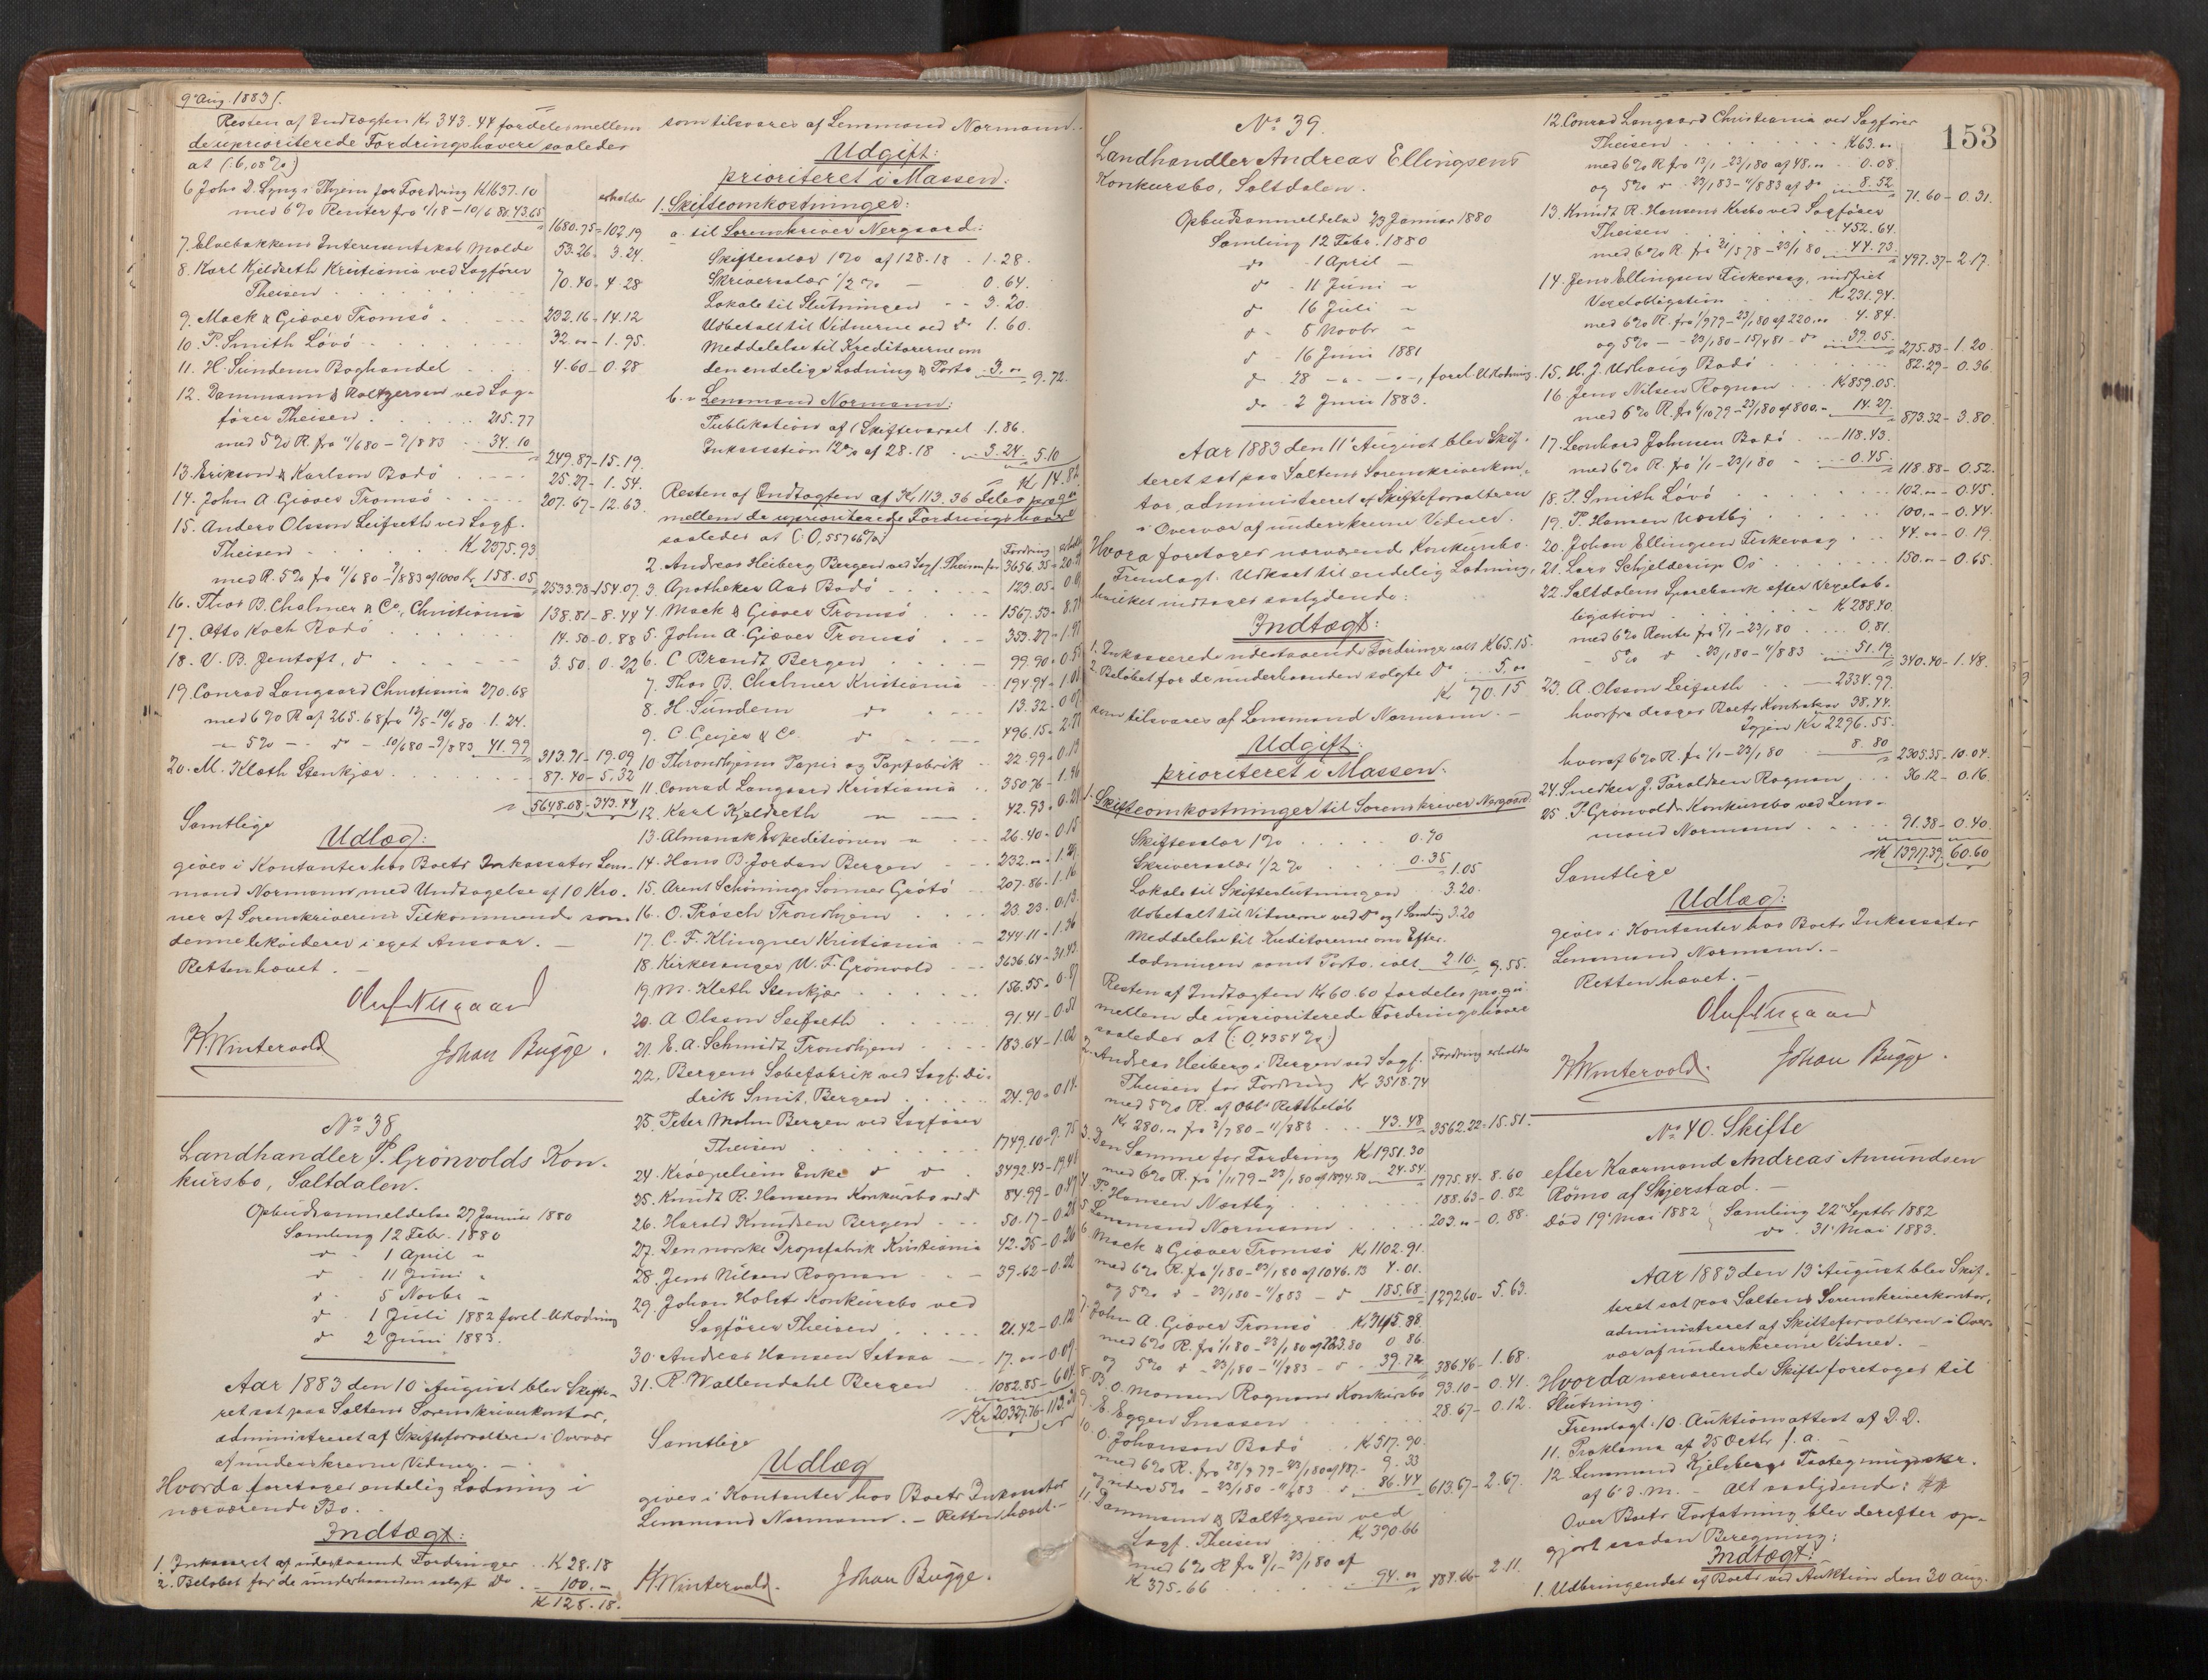 9' Aug. 1883.
Resten af Indtægten Kr. 343.44 fordeles mellem
de uprioriterede Fordringshavere saaledes
at (: 6,08 %)
erholder
6. John D. Lyng i Thjem for Fordring K 1637.10
med 6% Renter fra 1/1 8 - 10/6 80 43.65
1680.75 - 102.19
7. Elvebakkens Interessentskab Molde 53.26 - 3.24.
8. Karl Kjeldseth Kristiania ved Sagfører
Theisen 70.40 - 4.28
9. Mack & Giæver Tromsö 232.16 - 14.12
10. P. Smith Lövö 32.00 - 1.95.
11. H. Sundems Boghandel 4.60 - 0.28
12. Dammann & Baltzersen ved Sag-
fører Theisen 215.77
med 5% R. fra 11/6 80 - 9/8 83 34.10
249.87 - 15.19.
13. Erikson & Karlson Bodö 25.27 - 1.54.
14. John A Giæver Tromsö 207.67 - 12.63
15. Anders Olsson Leifseth ved Sagf.
Theisen K 2375.93
med R. 5% fra 11/6 80 - 9/8 83 af 1000 Kr. 158.05
2533.98 - 154.07
16. Thos B. Chalmer & Co, Christiania 138.81 - 8.44
17. Otto Koch Bodö 14.50 - 0.88
18. V. B. Jentoft, do 3.50 0.22
19. Conrad Langaard Christiania 270.68
med 6% R af 265.68 fra 12/5 - 10/6 80 1.24.
" 5% - do - 10/6 80 - 9/8 83 41.99
313.91 - 19.09
20. M. Kleth Stenkjær 87.40 - 5.32
5648.08 - 343.44
Samtlige
Udlæg:
gives i Kontanter hos Boets Inkassator Lens-
mand Normann med Undtagelse af 10 Kro-
ner af Sorenskriverens Tilkommende som
denne likviderer i eget Ansvar. -
Retten hævet. -
Oluf Nergaard
H. Wintervold Johan Bugge.
No 38
Landhandler P. Grönvolds Kon-
kursbo, Saltdalen.
Opbudsanmeldelse 27 Januar 1880
Samling 12 Febr. 1880
do - 1 April "
do - 11 Juni "
do - 5 Novbr "
do - 1 Juli 1882 forel. Utlodning
do 2 Juni 1883.
Aar 1883 den 10' August blev Skifte-
ret sat paa Saltens Sorenskriverkontor,
administreret af Skifteforvalteren i Overvær
af underskrevne Vidner. -
Hvorda foretages endelig Lodning i
nærværende Bo.
Indtægt:
1. Inkasseret af udestaaende Fordringer K 28.18
2. Beløbet for de underhaanden solgte Do 100.-
K 128.18.
som tilsvares af Lensmand Normann.
Udgift:
prioriteret i Massen:
1. Skifteomkostninger:
a. til Sorenskriver Nergaard:
Skiftesalær 1% af 128.18 1.28.
Skriversalær 1/2 % - 0.64.
Lokale til Slutningen 3.20.
Udbetalt til Vidnerne ved do 1.60.
Meddelelse til Kreditorerne om
den endelige Lodning & Porto 3.00 9.72.
b. " Lensmand Normann:
Publikation af 1 Skiftevarsel 1.86.
Inkassation 12% af 28.18 3.24. 5.10
Kr 14.82
Resten af Indtægten af Kr 113.36 deles
mellem de uprioriterede Fordringshavere
saaledes at (: 0,55766 %)
Fordring erholder
2. Andreas Heiberg Bergen ved Sagf. Theisen for 3656.35 -
3. Apotheker Aas Bodö 123.05 -
4. Mack & Giæver Tromsö 1567.53 -
5. John A. Giæver Tromsö 353.27 - 1.97
6. C Brandt Bergen 99.90 -
7. Thos B. Chalmer Kristiania 194.94 -
8. H. Sundem do 13.32 -
9. C. Geijer & Co. do 496.15 -
10 Throndhjems Papir og Papfabrik 22.99 - 0.13
11. Conrad Langaard Kristiania 350.76 - 1.96
12. Karl Kjeldseth " 42.93 -
13. Almanak Expeditionen " 26.40 - 0.15
14. Hans B. Jordan Bergen 232.00 - 1.29
15. Arent Schönings Sönner Grötö 207.86 - 1.16
16. O. Prösch Trondhjem 23.23 - 0.13
17. C. F. Klingner Kristiania 244.11 - 1.36
18. Kirkesanger W. F. Grönvold
19. M. Kleth Stenkjær 156.55 - 0.87
20. A Olsson Leifseth 91.41 - 0.51
21. E. A. Schmidt Trondhjem 183.64 - 1.02
22. Bergens Sæbefabrik ved Sagf. Di-
drik Smit, Bergen 24.90 - 0.14
23. Peter Mohn Bergen ved Sagfører
Theisen 1749.10 - 9.75
24. Kröepeliens Enke do do 3492.43 -
25. Knudt R. Hansens Konkursbo ved do 84.99 -
26. Harald Knudsen Bergen 50.17 - 0.28
27. Den norske Dropsfabrik Kristiania 42.35 -
28. Jens Nilsen Rognan 39.62 - 0.22
29. Johan Holsts Konkursbo ved
Sagfører Theisen 21.42 - 0.12
30. Andreas Hansen Setsaa 17.00 - 0.09
31. R. Wallendahl Bergen 1082.85 - 6.04
Samtlige
Udlæg
gives i Kontanter hos Boets Inkassator
Lensmand Normann. - Retten hævet. -
H. Wintervold. Johan Bugge.
No 39.
Landhandler Andreas Ellingsens
Konkursbo, Saltdalen.
Opbudsanmeldelse 23 Januar 1880
Samling 12 Febr. 1880
do - 1 April -
do - 11 Juni "
do 16 Juli "
do - 5 Novbr "
do 16 Juni 1881
do 28 - " - " -, forel. Utlodning.
do - 2 Juni 1883.
Aar 1883 den 11' August blev Skif-
teret sat paa Saltens Sorenskriverkon-
tor, administreret af Skifteforvalteren
i Overvær af underskrevne Vidner.
Hvora foretages nærværende Konkursbo.
Fremlagt. Udkast til endelig Lodning,
hvilket indtages saalydende:
Indtægt:
1. Inkasserede udestaaende Fordringer ialt K 65.15.
2. Beløbet for de underhaanden solgte Do 5.00
K 70.15
som tilsvares af Lensmand Normann. -
Udgift:
prioriteret i Massen:
1. Skifteomkostninger til Sorenskriver Nergaard:
Skiftesalær 1% 0.70
Skriversalær 1/2 % 0.35 1.05
Lokale til Skifteslutningen 3.20.
Udbetalt til Vidnerne ved Do og 1 Samling 3.20
Meddelelse til Kreditorerne om Efter-
lodningen samt Porto. ialt 2.10. 9.55.
Resten af Indtægten Kr 60.60 fordeles
mellem de uprioriterede Fordringshavere
saaledes at (: 0,4354 %)
Fordring erholder
2. Andreas Heiberg i Bergen ved Sagf.
Theisen for Fordring Kr 3518.74
med 5% R. af Obls Restbeløb
Kr 280.00 fra 3/7 80 - 11/8 83 43.48 3562.22 - 15.51.
3. Den Samme for Fordring K 1951.30
med 6% R. fra 1/11 79 - 23/1 80 af 1894.50 24.54 1975.84 - 8.60
4. P. Hansen Næstby 188.63 - 0.82
5. Lensmand Normann 203.00 - 0.88.
6. Mack & Giæver Tromsö Kr 1102.91.
med 6% R. fra 1/1 80 - 23/1 80 af 1046.13 4.01.
og 5% do - 23/1 80 - 11/8 83 - do 185.68 1292.60 - 5.63.
7. John A. Giæver Tromsö
med 6% R. fra 1/1 80 - 23/1 80 af 223.80 0.86
og 5% do - 23/1 80 - 11/8 83 - do 39.72 386.46 - 1.68.
8. O. Monsen Rognans Konkursbo 93.10 - 0.41.
9. E. Eggen Snaasen 28.67 - 0.12.
10. O. Johanson Bodö K 517.90.
med 6% R. fra 28/9 79 - 23/1 80 af 487.- 9.33
og videre 5% - 23/1 80 - 11/8 83 do 86.44 613.67 - 2.67.
11. Dammann & Baltzersen ved
Sagf. Theisen K 390.66
med 6% R fra 8/1 - 23/1 80 af
K 375.66 94.00 484.66 - 2.11.
153
12. Conrad Langaard Christiania ved Sagfører
Theisen K 63.00
med 6% R fra 13/1 - 23/1 80 af 48.00 0.08
og 5% do 23/1 83 - 11/8 83 af do 8.52 71.60 - 0.31.
13. Knudt R. Hansens Krsbo ved Sagfører
Theisen 452.64.
med 6% R. fra 21/5 78 - 23/1 80 44.73 497.37 - 2.17.
14. Jens Ellingsen Fiskevaag, indfriet
Vexelobligation Kr 231.94.
med 6% R. fra 1/9 79 - 23/1 80 af 220.00 4.84.
og 5% - 23/1 80 - 15/4 81 - do 39.05. 275.83 - 1.20.
15. H. J. Urhaug Bodö 82.29 - 0.36.
16. Jens Nilsen Rognan K 859.05.
med 6% R. fra 6/10 79 - 23/1 80 af 800.- 14.27. 873.32 - 3.80.
17. Leonhard Johnsen Bodö 118.43.
med 6% R. fra 1/1 - 23/1 80 0.45. 118.88 - 0.52.
18. P. Smith Lövö 102.00 - 0.45.
19. P. Hansen Næstby 100.- - 0.44.
20. Johan Ellingsen Fiskevaag 44.00 - 0.19.
21. Lars Schjelderup Os 150.00 - 0.65.
22. Saltdalens Sparebank efter Vexelob-
ligation K 288.40.
med 6% Rente fra 5/1 - 23/1 80 0.81.
- 5% do - 23/1 80 - 11/8 83 51.19 340.40 - 1.48.
23. A. Olsson Leifseth 2334.99.
hvorfra drages Boets Kontrakrav 38.44.
Igjen Kr 2296.55.
hvoraf 6% R. fra 1/1 - 23/1 80 8.80 2305.35 - 10.04.
24. Snedker J. Taraldsen Rognan 36.12 - 0.16.
25. P. Grönvolds Konkursbo ved Lens-
mand Normann 91.38 - 0.40.
K 13917.39 60.60
Samtlige
Udlæg:
gives i Kontanter hos Boets Inkassator
Lensmand Normann. -
Retten hævet. -
Oluf Nergaard
H. Wintervold. Johan Bugge.
No 40. Skifte
efter Kaarmand Andreas Amundsen
Römo af Skjerstad. -
Död 19' Mai 1882 Samling 22' Septbr 1882
do. 31' Mai 1883.
Aar 1883 den 13' August blev Skif-
teret sat paa Saltens Sorenskriverkontor,
administreret af Skifteforvalteren i Over-
vær af underskrevne Vidner. -
Hvorda nærværende Skifte foretoges til
Slutning.
Fremlagt: 10. Auktionsattest af D. D.
11. Proklama af 25 Octbr f. a.
12. Lensmand Kjelsbergs
af 6' d. M. - Alt saalydende:
Over Boets Forfatning blev derefter op-
gjort saadan Beregning:
Indtægt:
1. Udbringendet af Boets ved Auktion den 30 Aug.